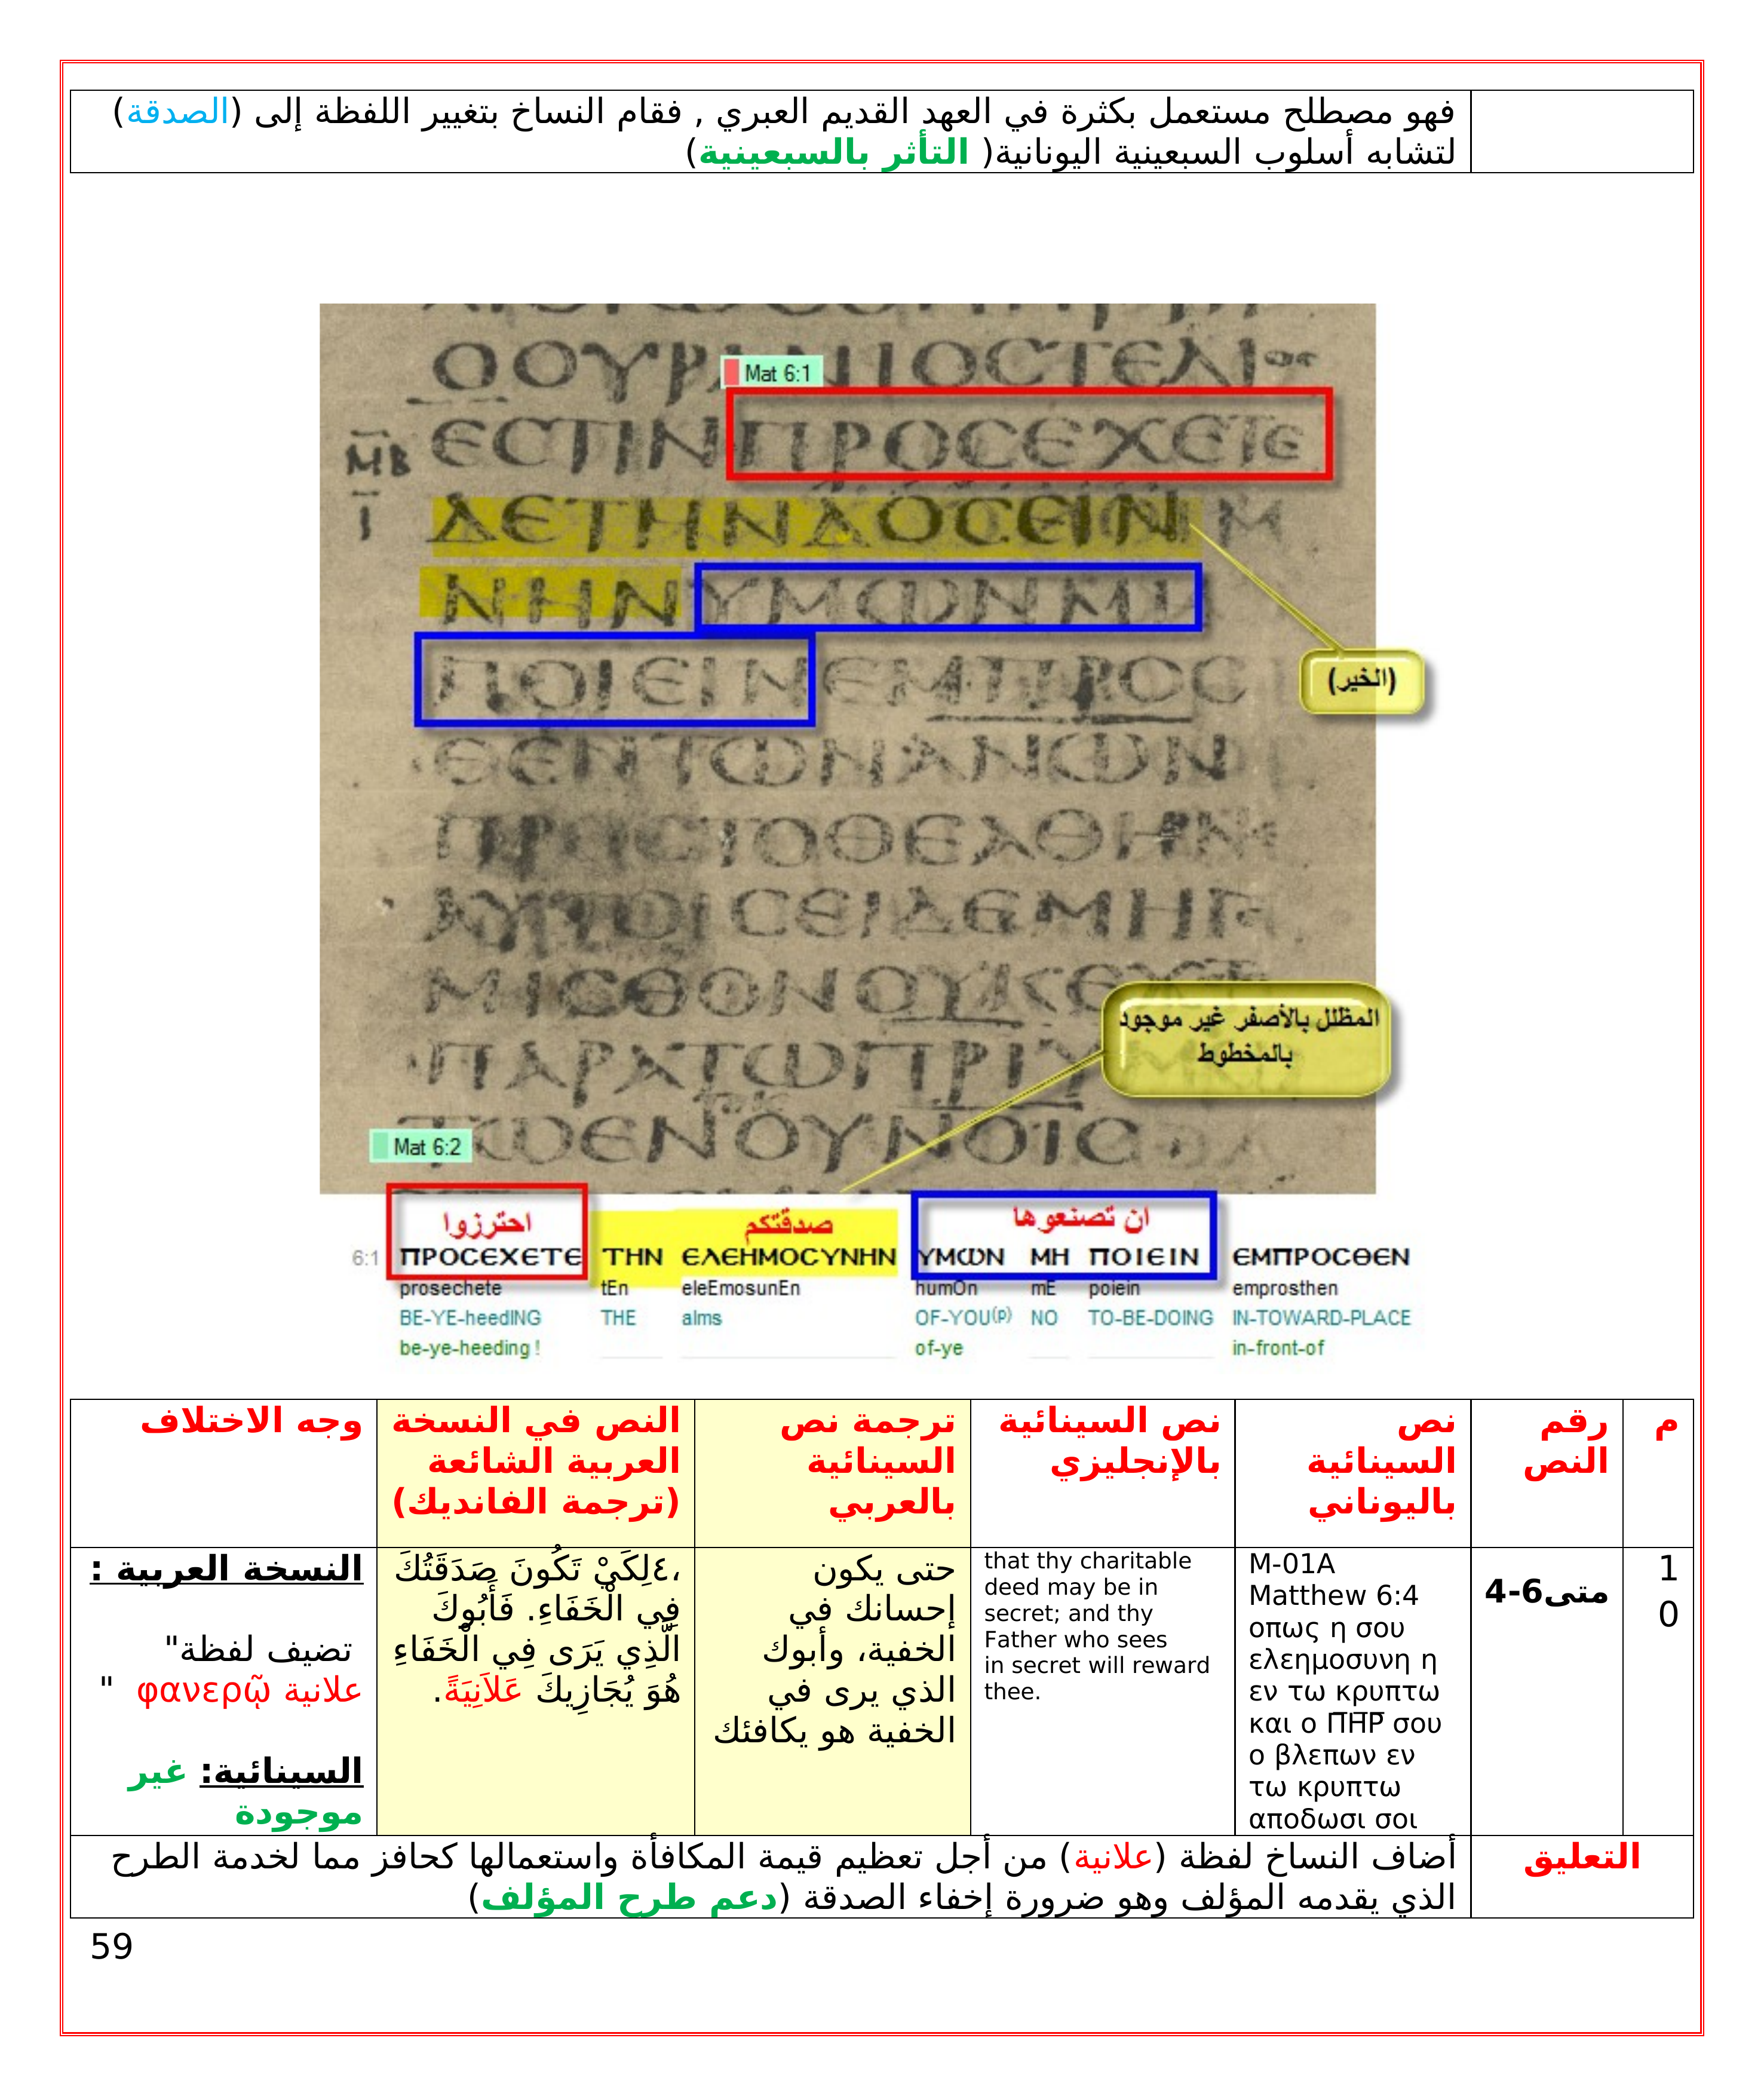 فهو مصطلح مستعمل بكثرة في العهد القديم العبري , فقام النساخ بتغيير اللفظة إلى (الصدقة)
لتشابه أسلوب السبعينية اليونانية( التأثر بالسبعينية)
Mat 6:1
ΕCΤΙΝΠΡΟCΕΧΕΤΕ
ΜΒ
Ι
ΝΗΝΥΜΩΝΜΗ
ΠΟΙΕΙΝΕΜΠΡΟC
(الخير)
ΘΕΝΤΩΝΑΝΩΝ
ΠΡΟCΤΟΘΕΑΘΗΝ
ΑΥΤΟΙCΕΙΔΕΜΗΓΕ
ΜΙCΘΟΝΟΥΚ
المظلل بالأصفر غير موجود
بالمخطوط
ΠΑΡΑΤΩΠΡΙΥ
Mat 6:2
احترزوا صدقتكم ان تصنعوها
6:1 ΠΡΟCΕΧΕΤΕ ΤΗΝ ΕΛΕΗΜΟCΥΝΗΝ ΥΜΩΝ ΜΗ ΠΟΙΕΙΝ ΕΜΠΡΟCΘΕΝ
prosechete tEn eleEmosunEn humOn mE poiein emprosthen
BE-YE-heedING THE alms OF-YOU(p) NO TO-BE-DOING IN-TOWARD-PLACE
be-ye-heeding ! of-ye in-front-of
م
رقم
النص
نص
السينائية
باليوناني
نص السينائية
بالإنجليزي
ترجمة نص
السينائية
بالعربي
النص في النسخة
العربية الشائعة
(ترجمة الفانديك)
وجه الاختلاف
1
0
متى6-4
M-01A
Matthew 6:4
οπως η σου
ελεημοσυνη η
εν τω κρυπτω
και ο Π̅Η̅Ρ̅ σου
ο βλεπων εν
τω κρυπτω
αποδωσι σοι
that thy charitable
deed may be in
secret; and thy
Father who sees
in secret will reward
thee.
حتى يكون
إحسانك في
الخفية، وأبوك
الذي يرى في
الخفية هو يكافئك
،٤لِكَيْ تَكُونَ صَدَقَتُكَ
فِي الْخَفَاءِ. فَأَبُوكَ
الَّذِي يَرَى فِي الْخَفَاءِ
هُوَ يُجَازِيكَ عَلاَنِيَةً.
النسخة العربية :
تضيف لفظة"
علانية φανερῷ "
السينائية: غير
موجودة
التعليق
أضاف النساخ لفظة (علانية) من أجل تعظيم قيمة المكافأة واستعمالها كحافز مما لخدمة الطرح
الذي يقدمه المؤلف وهو ضرورة إخفاء الصدقة (دعم طرح المؤلف)
59